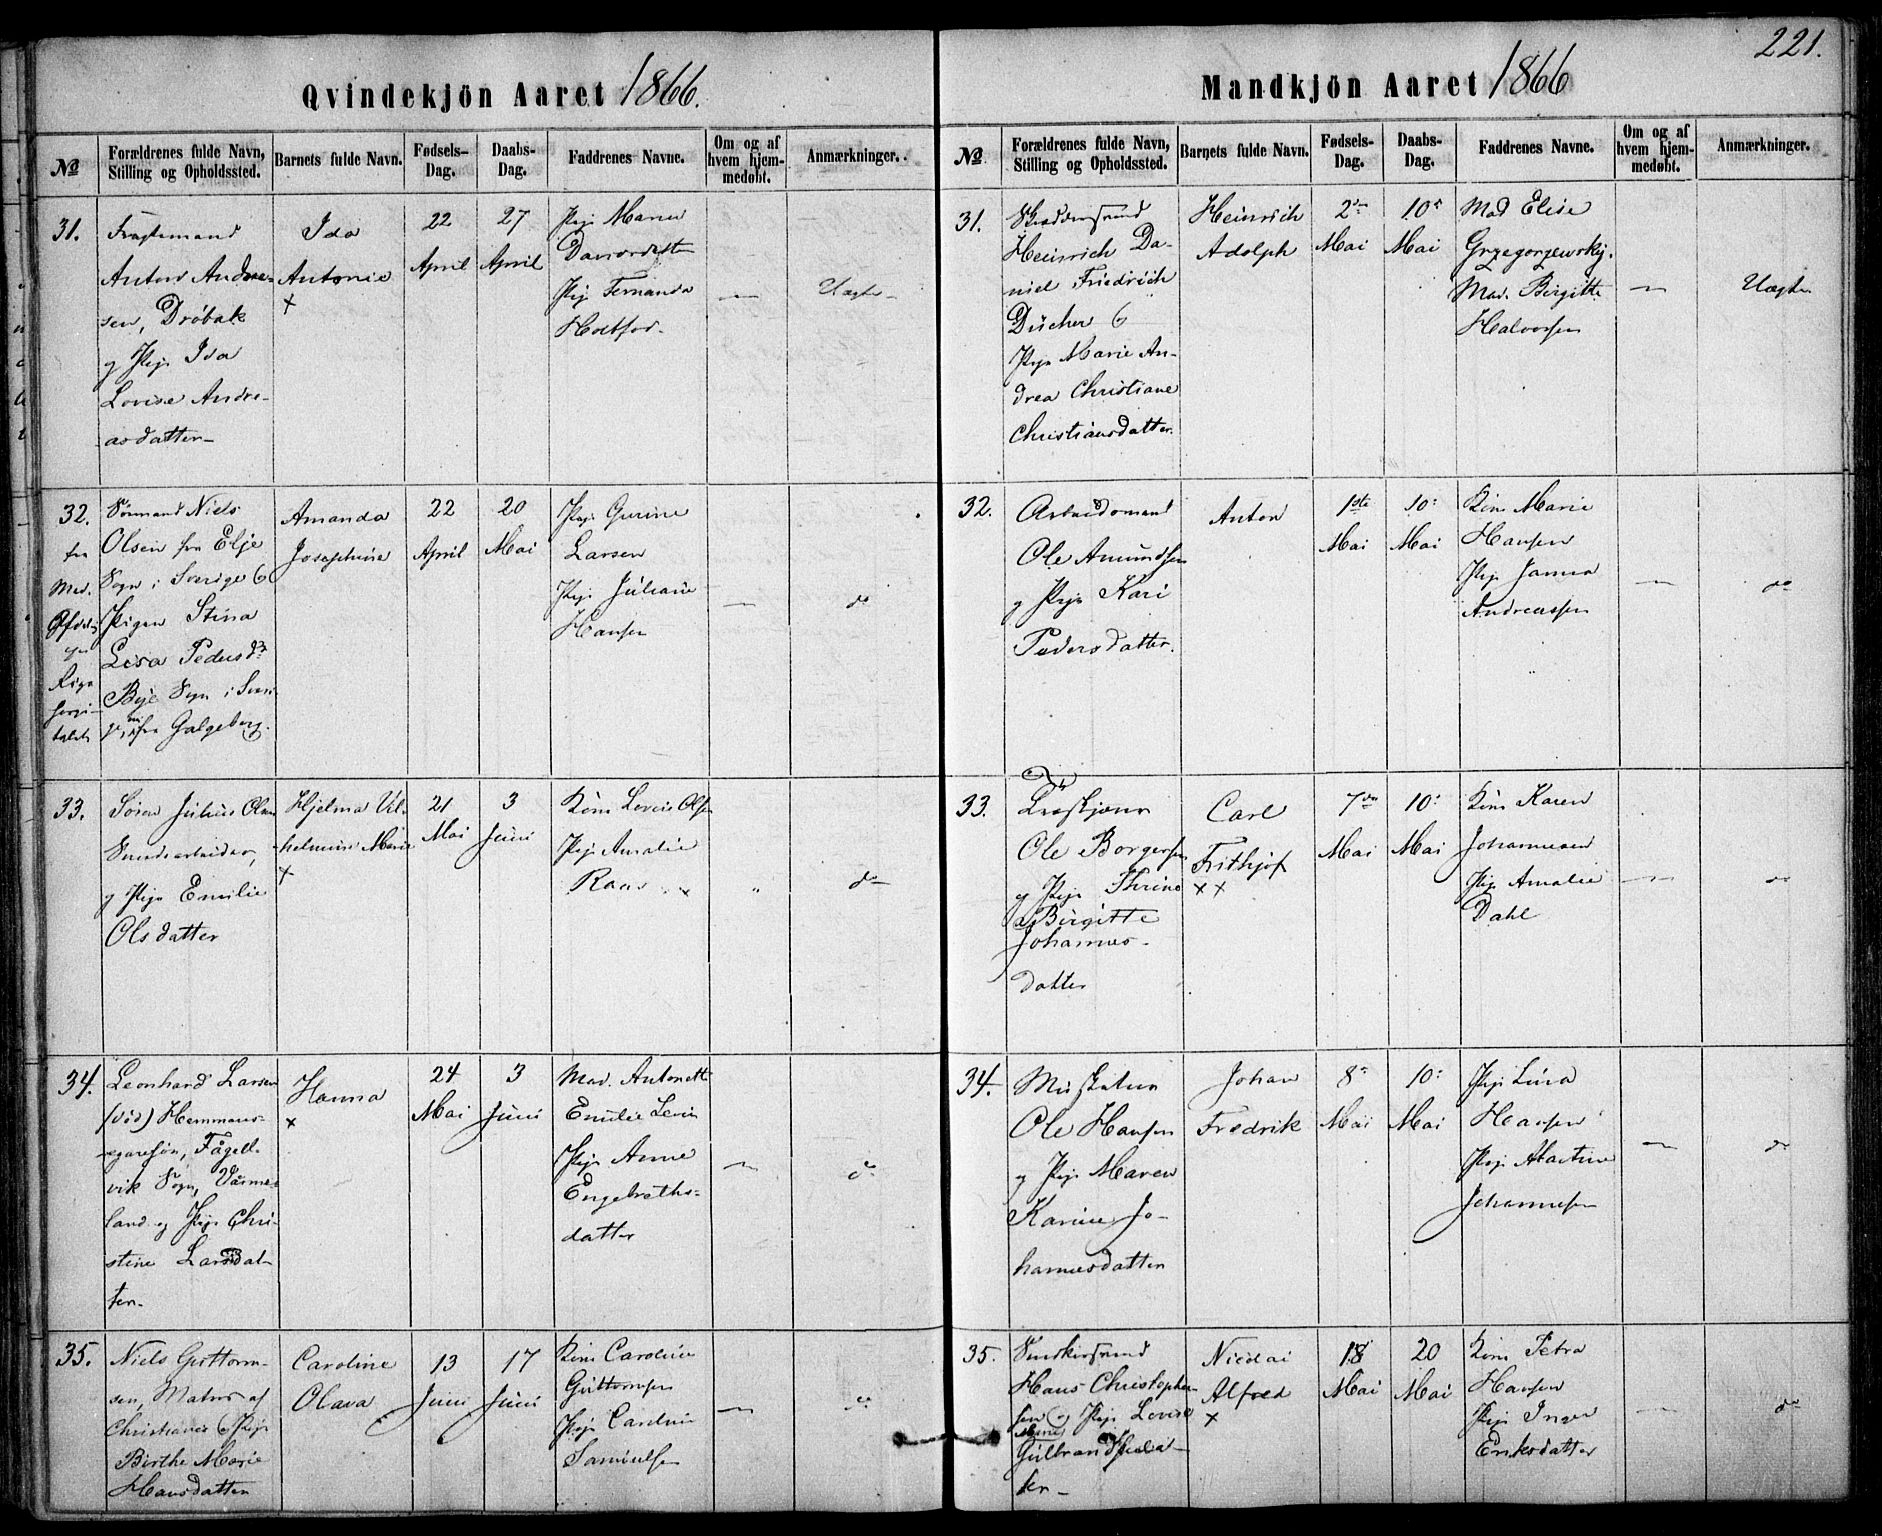 221.
Qvindekjön Aaret 1866.
No
Forældrenes fulde Navn,
Stilling og Opholdssted.
Barnets fulde Navn.
Fødsels-
Dag.
Daabs-
Dag.
Faddrenes Navne.
Om og af
hvem hjem-
medøbt.
Anmærkninger.
31.
Fragtemand
Anton Andrea-
sen, Drøbak
og Pige Ida
Lovise Andre-
asdatter
Ida
Antonie
+
22
April
27
April
Pige Maren
Pige Fernanda
—
Uægte
32.
fra
Mad.
Sømand Niels
Olsen fra Elje
Sogn i Sverige &
Pigen Stina
Lisa Pedersd
Bye Sogn i Sveri-
ge, fra Galgeberg.
Amanda
Josephine
22
April
20
Mai
Pige Gurine
Larsen
Pige Juliane
Hansen
—
do
33.
Søren Julius Olsen
og Pige Emilie
Olsdatter
Hjelma Vil-
helmine Marie
+
21
Mai
3
Juni
Kone Lovise Olsen
Pige Amalie
"
do
34.
Leonhard Larsen
(død) Hemmans-
egaresøn, Fågel-
vik Sogn, Värme-
land og Pige Chri-
stine Larsdat-
ter
Hanna
+
24
Mai
3
Juni
Mad. Antonette
Emilie
Pige Anne
Engebrethsdatter
—
do
35.
Niels Guttorm-
sen, Matros af
Christiania & Pige
Birthe Marie
Hansdatter
Caroline
Olava
13
Juni
17
Juni
Kone Caroline
Guttormsen
Pige Caroline
Samuelsen
—
do
Mandkjön Aaret 1866
No
Forældrenes fulde Navn,
Stilling og Opholdssted.
Barnets fulde Navn.
Fødsels-
Dag.
Daabs-
Dag.
Faddrenes Navne.
Om og af
hvem hjem-
medøbt.
Anmærkninger.
31.
Skræddersvend
Heinrich Da-
niel Friedrich
Düscher &
Pige Marie An-
drea Christiane
Christiansdatter.
Heinrich
Adolph
2den
Mai
10
Mai
Mad Elise
Grzegorzewsky.
Mad. Birgitte
Halvorsen
—
Uægte
32.
Arbeidsmand
Ole Amundsen
og Pige Kari
Pedersdatter.
Anton
1ste
Mai
10
Mai
Kone Marie
Hansen
Pige Janna
Andreassen
—
do
33.
Ole Borgersen
og Pige Thrine
Birgitte
Johannes-
datter
Carl
Frithjof
+ +
7de
Mai
10
Mai
Kone Karen
Johannesen
Pige Amalie
Dahl
—
do
34.
Ole Hansen
og Pige Maren
Karine Jo-
hannesdatter
Johan
Fredrik
8
Mai
10
Mai
Pige Lina
Hansen
Pige Martine
Johannesen
—
do
35.
Hans Christopher-
sen og Pige Lovise
Marie
Nicolai
Alfred
+
18
Mai
20
Mai
Kone Petra
Hansen
Pige Inger
Eriksdatter
—
do